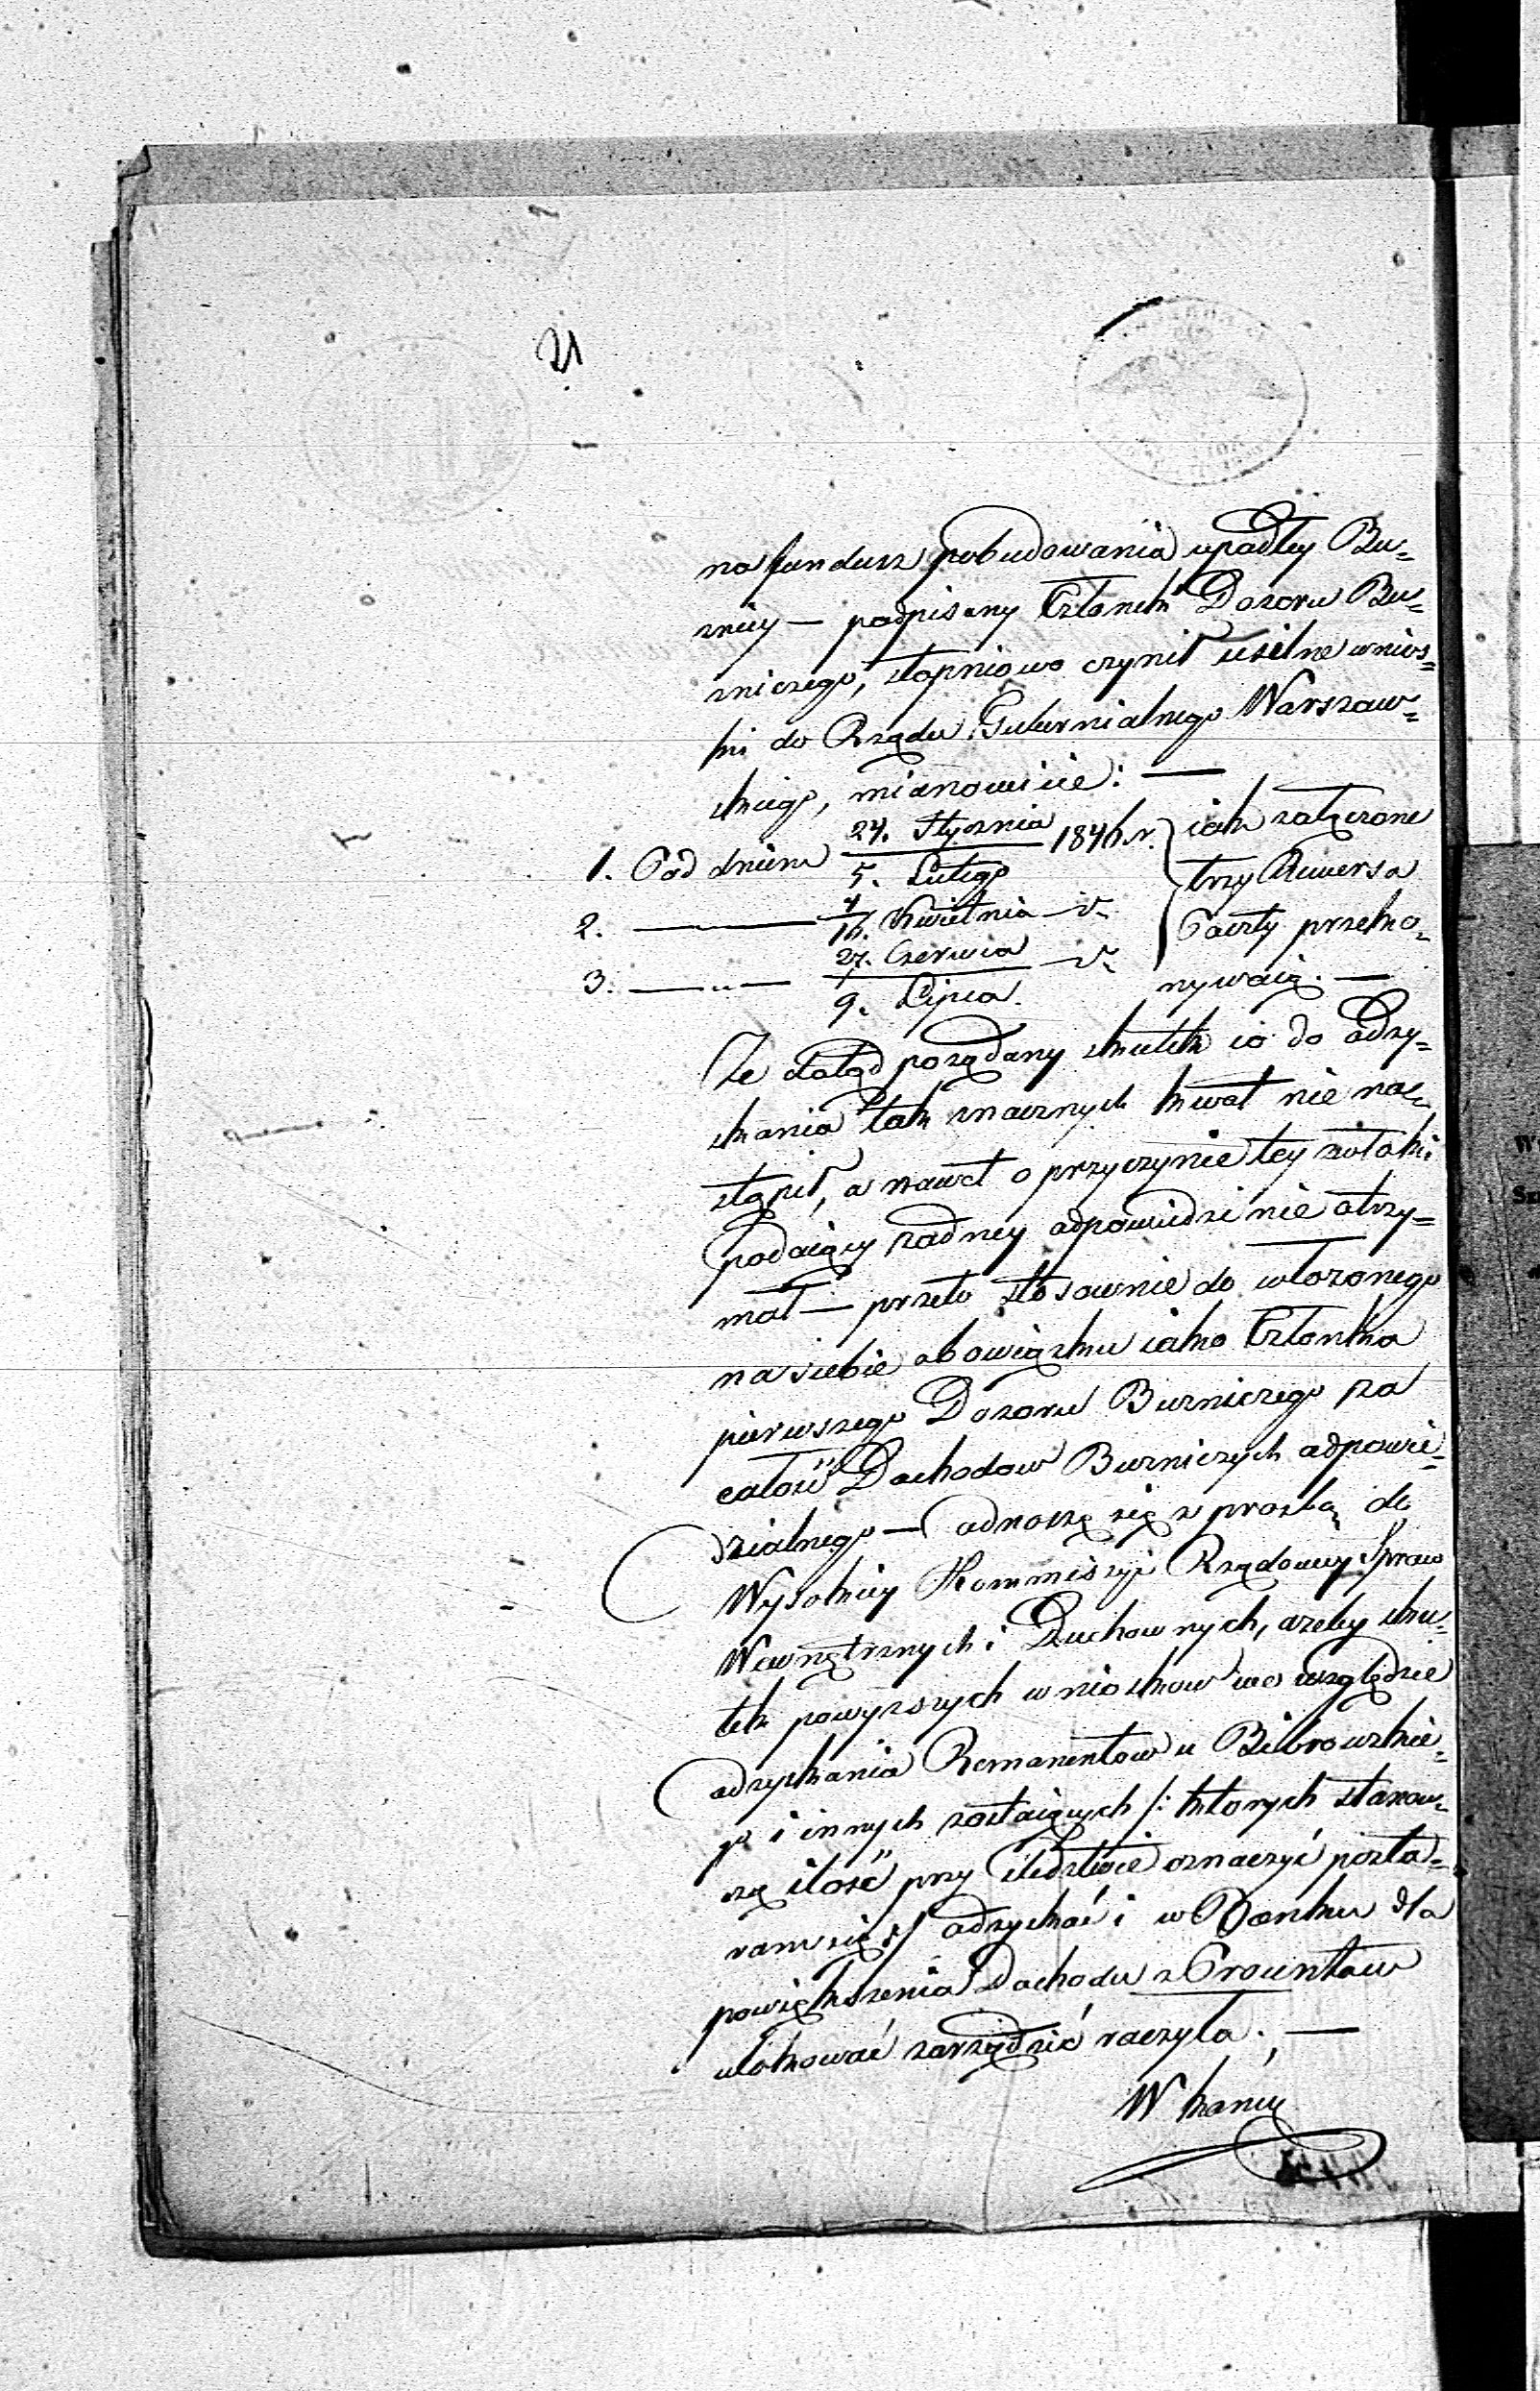 21
na fundusz pobudowania upadłey Bu=
znicy — podpisany Członek Dozoru Bu=
zniczego, stopniowo czynił usilne wnios=
ki do Rządu Gubernialnego Warszaw=
skiego, mianowicie: —
1. Pod dniem 24. Stycznia / 5. Lutego 1846. r. } iak załączone
2. — 4 / 16. Kwietnia — } trzy Rewersa
Poczty przeko=
3. — „ — 27. Czerwca / 9. Lipca — nywaią. —
Że dotąd pożądany skutek co do odzy=
skania tak znacznych kwot nie na=
stąpił, a nawet o przyczynie tey zwłoki
podaiący żadney odpowiedzi nie otrzy=
mał — przeto stosownie do włożonego
na siebie obowiązku iako Członka
pierwszego Dozoru Buzniczego za
całość Dochodow Buzniczych odpowie=
dzialnego — odnoszę się z prozbą do
Wysokiey Kommissyi Rządowey Spraw
Wewnętrznych i Duchownych, ażeby sku=
tek powyższych wniosków we względzie
odzyskania Remanentow u Bibrowskie=
go i innych zostaiących /: których stanow=
czą ilość przy śledztwie oznaczyć posta=
ram się :/ odzyskać i w Banku dla
powiększenia Dochodu z Procuntow
ulokować zarządzić raczyła. —
W koncu